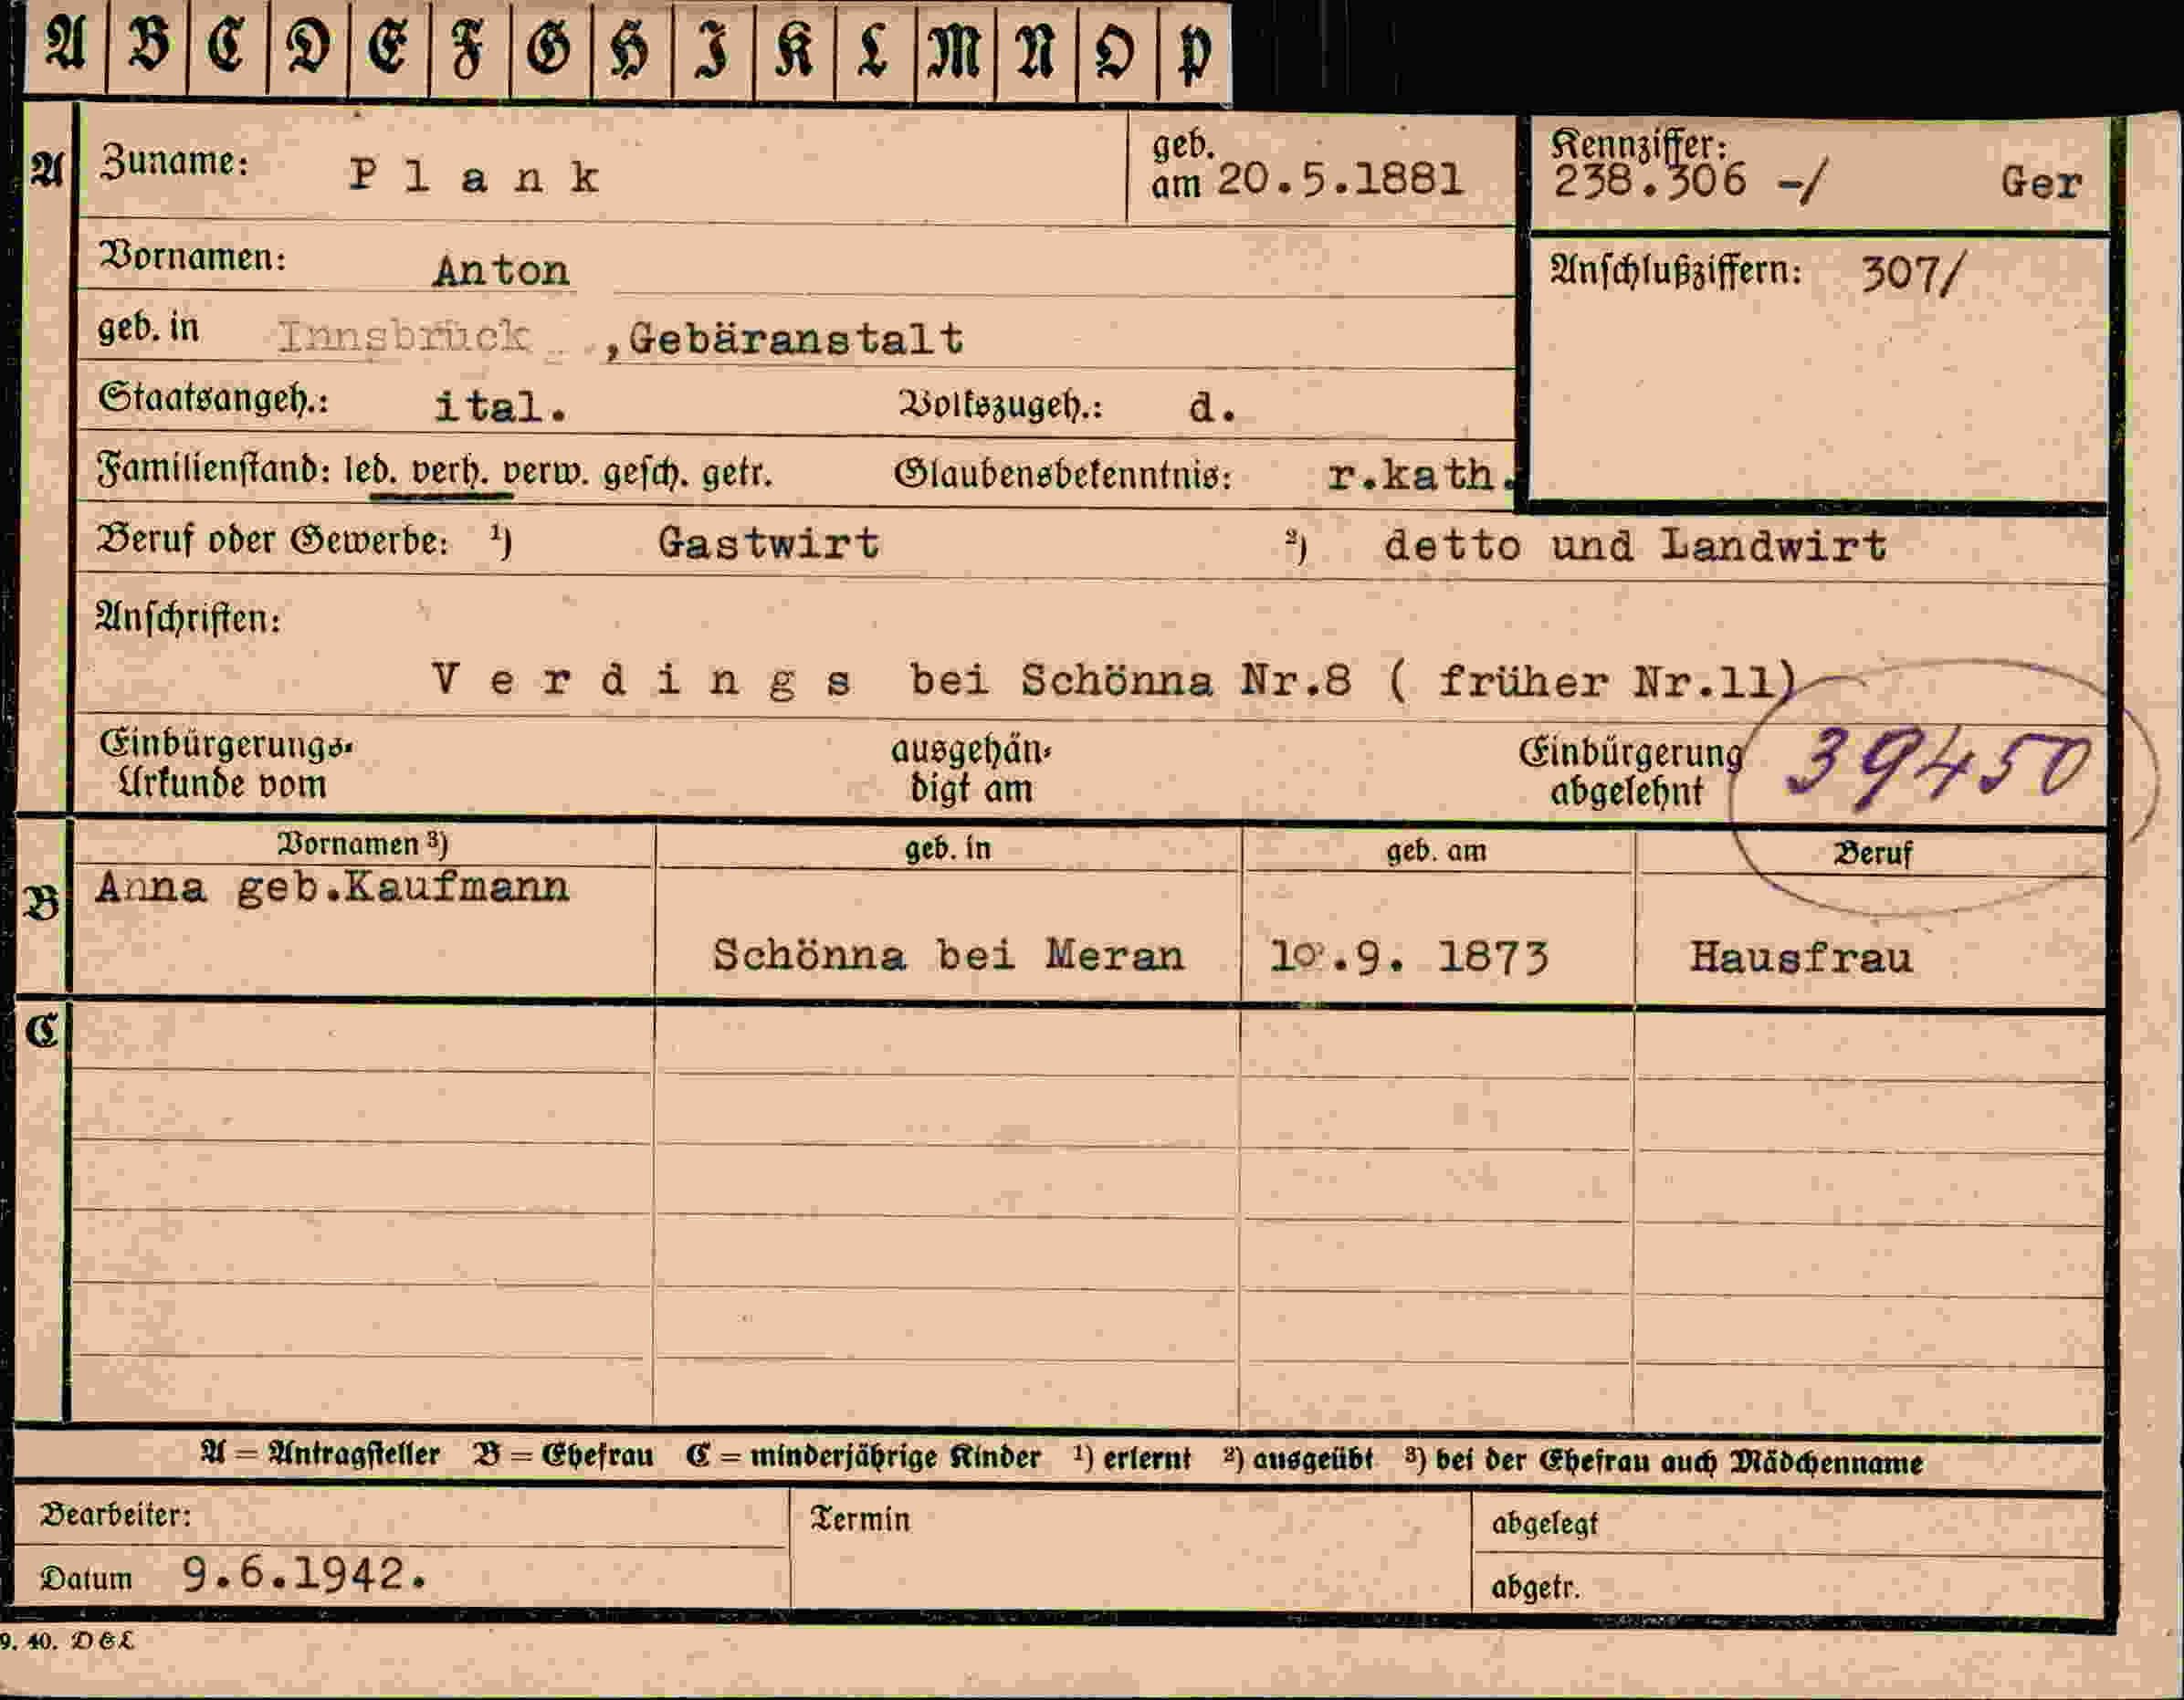 A B C D E F G H I K L M N O P
A Zuname: Plank geb. am 20.5.1881 Kennziffer: 238.306 -/ Ger
Vornamen: Anton Anschlußziffern: 307/
geb. in Innsbruck ,Gebäranstalt
Staatsangeh.: ital. Volkszugeh.: d.
Familienstand: led. verh. verw. gesch. getr. Glaubensbekenntnis: r.kath.
Beruf oder Gewerbe: ¹) Gastwirt ²) detto und Landwirt
Anschriften:
Verdings bei Schönna Nr.8 ( früher Nr.11)
Einbürgerungs- ausgehän- Einbürgerung 39450
Urkunde vom digt am abgelehnt
Vornamen ³) geb. in geb. am Beruf
B Anna geb.Kaufmann
Schönna bei Meran 10.9. 1873 Hausfrau
C
A = Antragsteller B = Ehefrau C = minderjährige Kinder ¹) erlernt ²) ausgeübt ³) bei der Ehefrau auch Mädchenname
Bearbeiter: Termin abgelegt
Datum 9.6.1942. abgetr.
9. 40. D&L